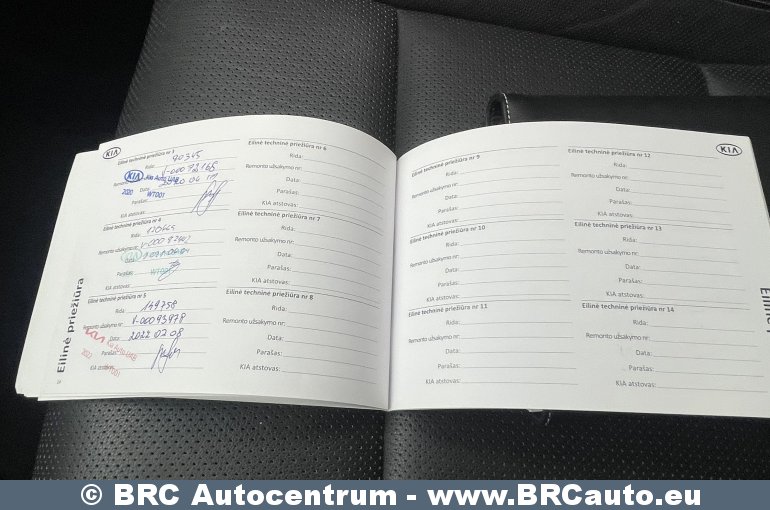 KIA
Eilinė techninė priežiūra nr 3
Rida: 90345
Remonto užsakymo nr:
KIA Jko Auto UAB
2020 Data: 2020 04
WT001
Parašas:
KIA atstovas:
Eilinė techninė priežiūra nr 4
Rida:
Remonto užsakymo nr:
Data:
Parašas: WT001
KIA atstovas:
Eilinė techninė priežiūra nr 5
Rida: 149758
Remonto užsakymo nr: V-00093978
Data: 2022 02 08
2022 Parašas:
KIA atstovas: WT001
Eilinė priežiūra
24
Eilinė techninė priežiūra nr 6
Rida:
Remonto užsakymo nr:
Data:
Parašas:
KIA atstovas:
Eilinė techninė priežiūra nr 7
Rida:
Remonto užsakymo nr:
Data:
Parašas:
KIA atstovas:
Eilinė techninė priežiūra nr 8
Rida:
Remonto užsakymo nr:
Data:
Parašas:
KIA atstovas:
Eilinė techninė priežiūra nr 9
Rida:
Remonto užsakymo nr:
Data:
Parašas:
KIA atstovas:
Eilinė techninė priežiūra nr 10
Rida:
Remonto užsakymo nr:
Data:
Parašas:
KIA atstovas:
Eilinė techninė priežiūra nr 11
Rida:
Remonto užsakymo nr:
Data:
Parašas:
KIA atstovas:
KIA
Eilinė techninė priežiūra nr 12
Rida:
Remonto užsakymo nr:
Data:
Parašas:
KIA atstovas:
Eilinė techninė priežiūra nr 13
Rida:
Remonto užsakymo nr:
Data:
Parašas:
KIA atstovas:
Eilinė techninė priežiūra nr 14
Rida:
Remonto užsakymo nr:
Data:
Parašas:
KIA atstovas:
© BRC Autocentrum - www.BRCauto.eu